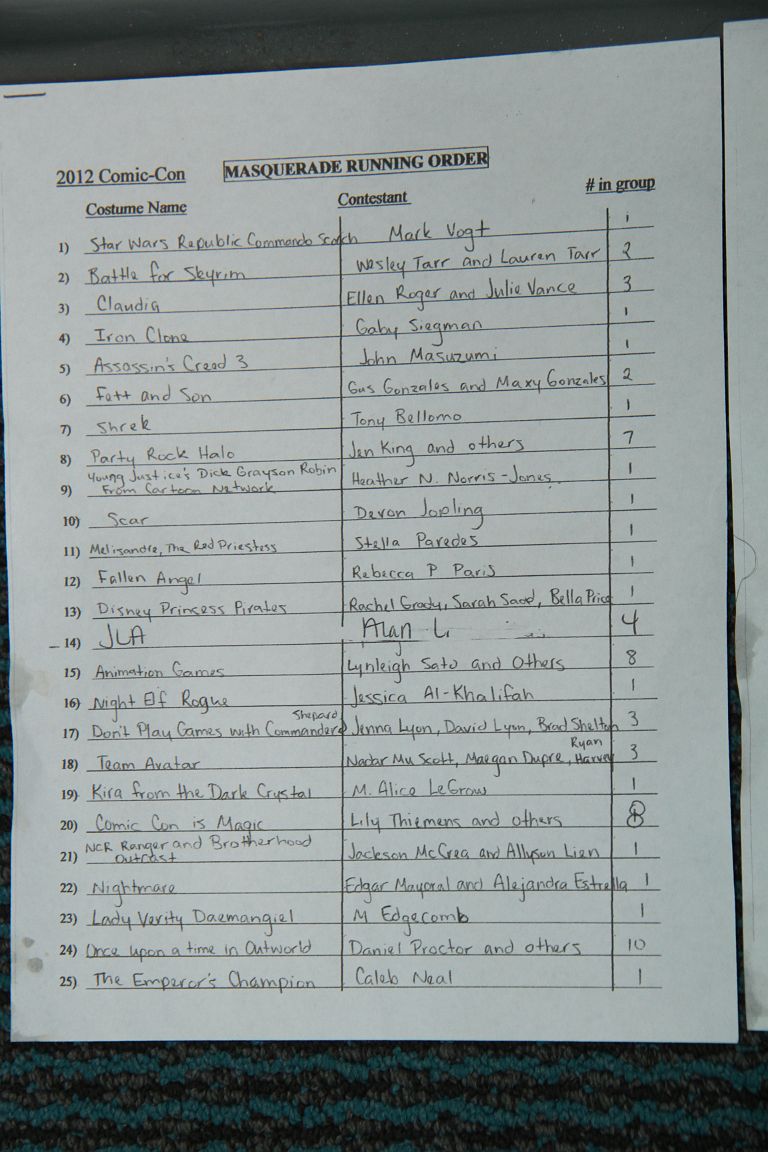 2012 Comic-Con MASQUERADE RUNNING ORDER
Costume Name Contestant # in group
1) Star Wars Republic Commando Scotch Mark Vogt 1
2) Battle for Skyrim Wesley Tarr and Lauren Tarr 2
3) Claudia Ellen Roger and Julie Vance 3
4) Iron Clone Gaby Siegman 1
5) Assassin's Creed 3 John Masuzumi 1
6) Fett and Son Gus Gonzales and Maxy Gonzales 2
7) Shrek Tony Bellomo 1
8) Party Rock Halo Jen King and others 7
Young Justice's Dick Grayson Robin
9) From Cartoon Network Heather N. Norris-Jones 1
10) Scar Devon Jopling 1
11) Melisandre, The Red Priestess Stella Paredes 1
12) Fallen Angel Rebecca P Paris 1
13) Disney Princess Pirates Rachel Grady, Sarah Saad, Bella Price 1
14) JLA Alan L. 4
15) Animation Games Lynleigh Sato and Others 8
16) Night Of Rogue Jessica Al-Khalifah 1
Shepard
17) Don't Play Games with Commander Jenna Lyon, David Lyon, Brad Shelton 3
Ryan
18) Team Avatar Nadar Mu Scott, Maegan Dupre, Harvey 3
19) Kira from the Dark Crystal M. Alice LeGrow 1
20) Comic Con is Magic Lily Thiemens and others 8
NCR Ranger and Brotherhood
21) Outcast Jackson McCrea and Allyson Lien 1
22) Nightmare Edgar Mayoral and Alejandra Estrella 1
23) Lady Verity Daemangiel M Edgecomb 1
24) Once upon a time in Outworld Daniel Proctor and others 10
25) The Emperor's Champion Caleb Neal 1